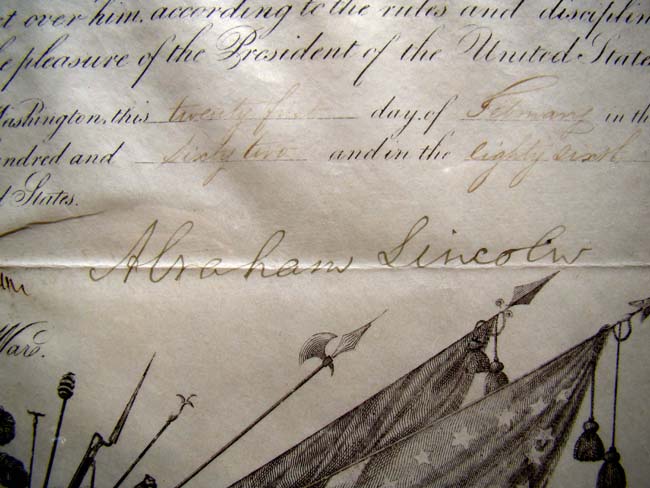 over him, according to the rules and disciplin
pleasure of the President of the United State
Washington, this twenty first day of February in the
hundred and sixty two and in the eighty sixth
d States.
Abraham Lincoln
War.